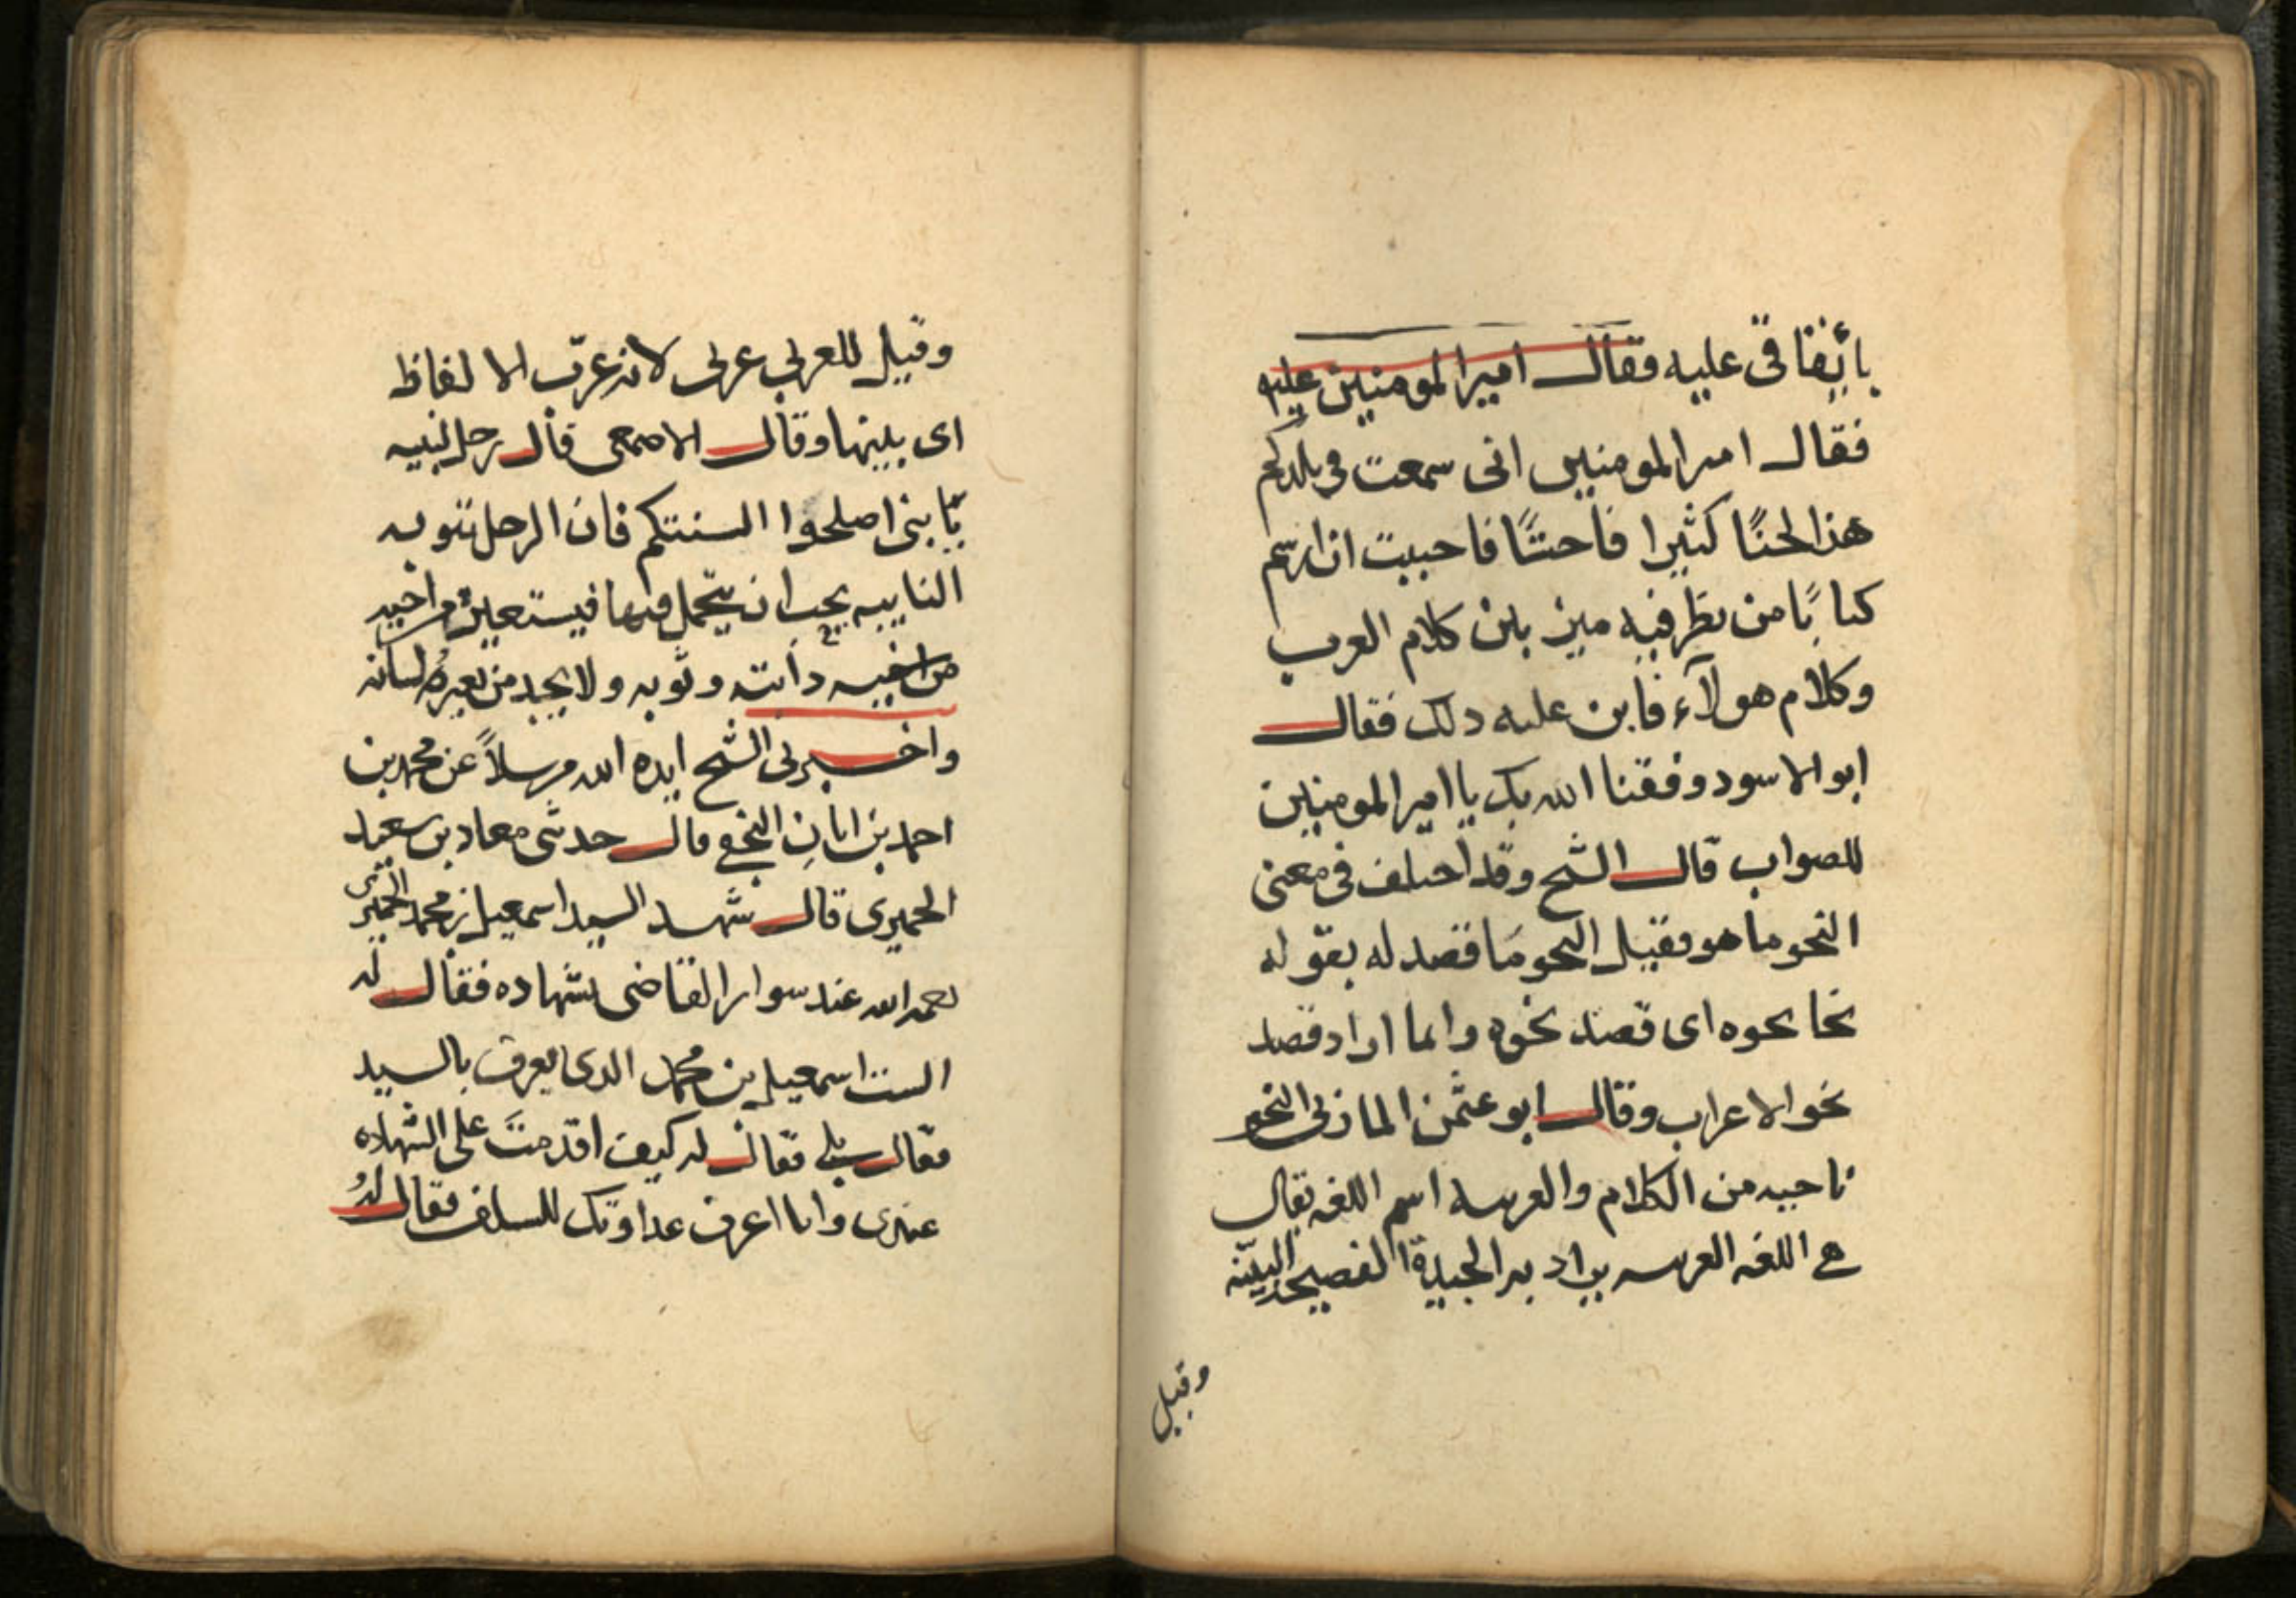 بانفاقى عليه فقال امير المومنين عليه
فقال امير المومنين انى سمعت فى بلدكم
هذا لحنًا كثيرا فاحشًا فاحببت ان ارسم
كتابًا من نظر فيه ميز بين كلام العرب
وكلام هولآء فابن عليه ذلك فقال
ابو الاسود وفقنا الله بك يا امير المومنين
للصواب قال الشيخ وقد اختلف فى معنى
النحو ما هو فقيل النحو ما قصد له بقوله
نحا نحوه اى قصد نحوه وانما اراد قصد
نحو الاعراب وقال ابو عثمن المازنى النحو
ناحيه من الكلام والعربيه اسم اللغه يقال
هى اللغه العربيه يراد به الجيدة الفصيحه البيّنه
وقيل
وقيل للعربى عربى لانه عرّب الالفاظ
اى بينها وقال الاصمعى قال رجل لبنيه
يا بنى اصلحوا السنتكم فان الرجل تنوبه
النايبه يجب ان يتجمل فيها فيستعير من اخيه
من اخيه دابته وثوبه ولا يجد من يعيره لسانه
واخبرنى الشيخ ايده الله مرسلاً عن محمد بن
احمد بن ابان النخعى قال حدثنى معاذ بن سعيد
الحميرى قال شهد السيد اسمعيل بن محمد الحميرى
رحمه الله عند سوار القاضى بشهاده فقال له
الست اسمعيل بن محمد الذى يعرف بالسيد
فقال بلى فقال له كيف اقدمتَ على الشهاده
عندى وانا اعرف عداوتك للسلف فقال له